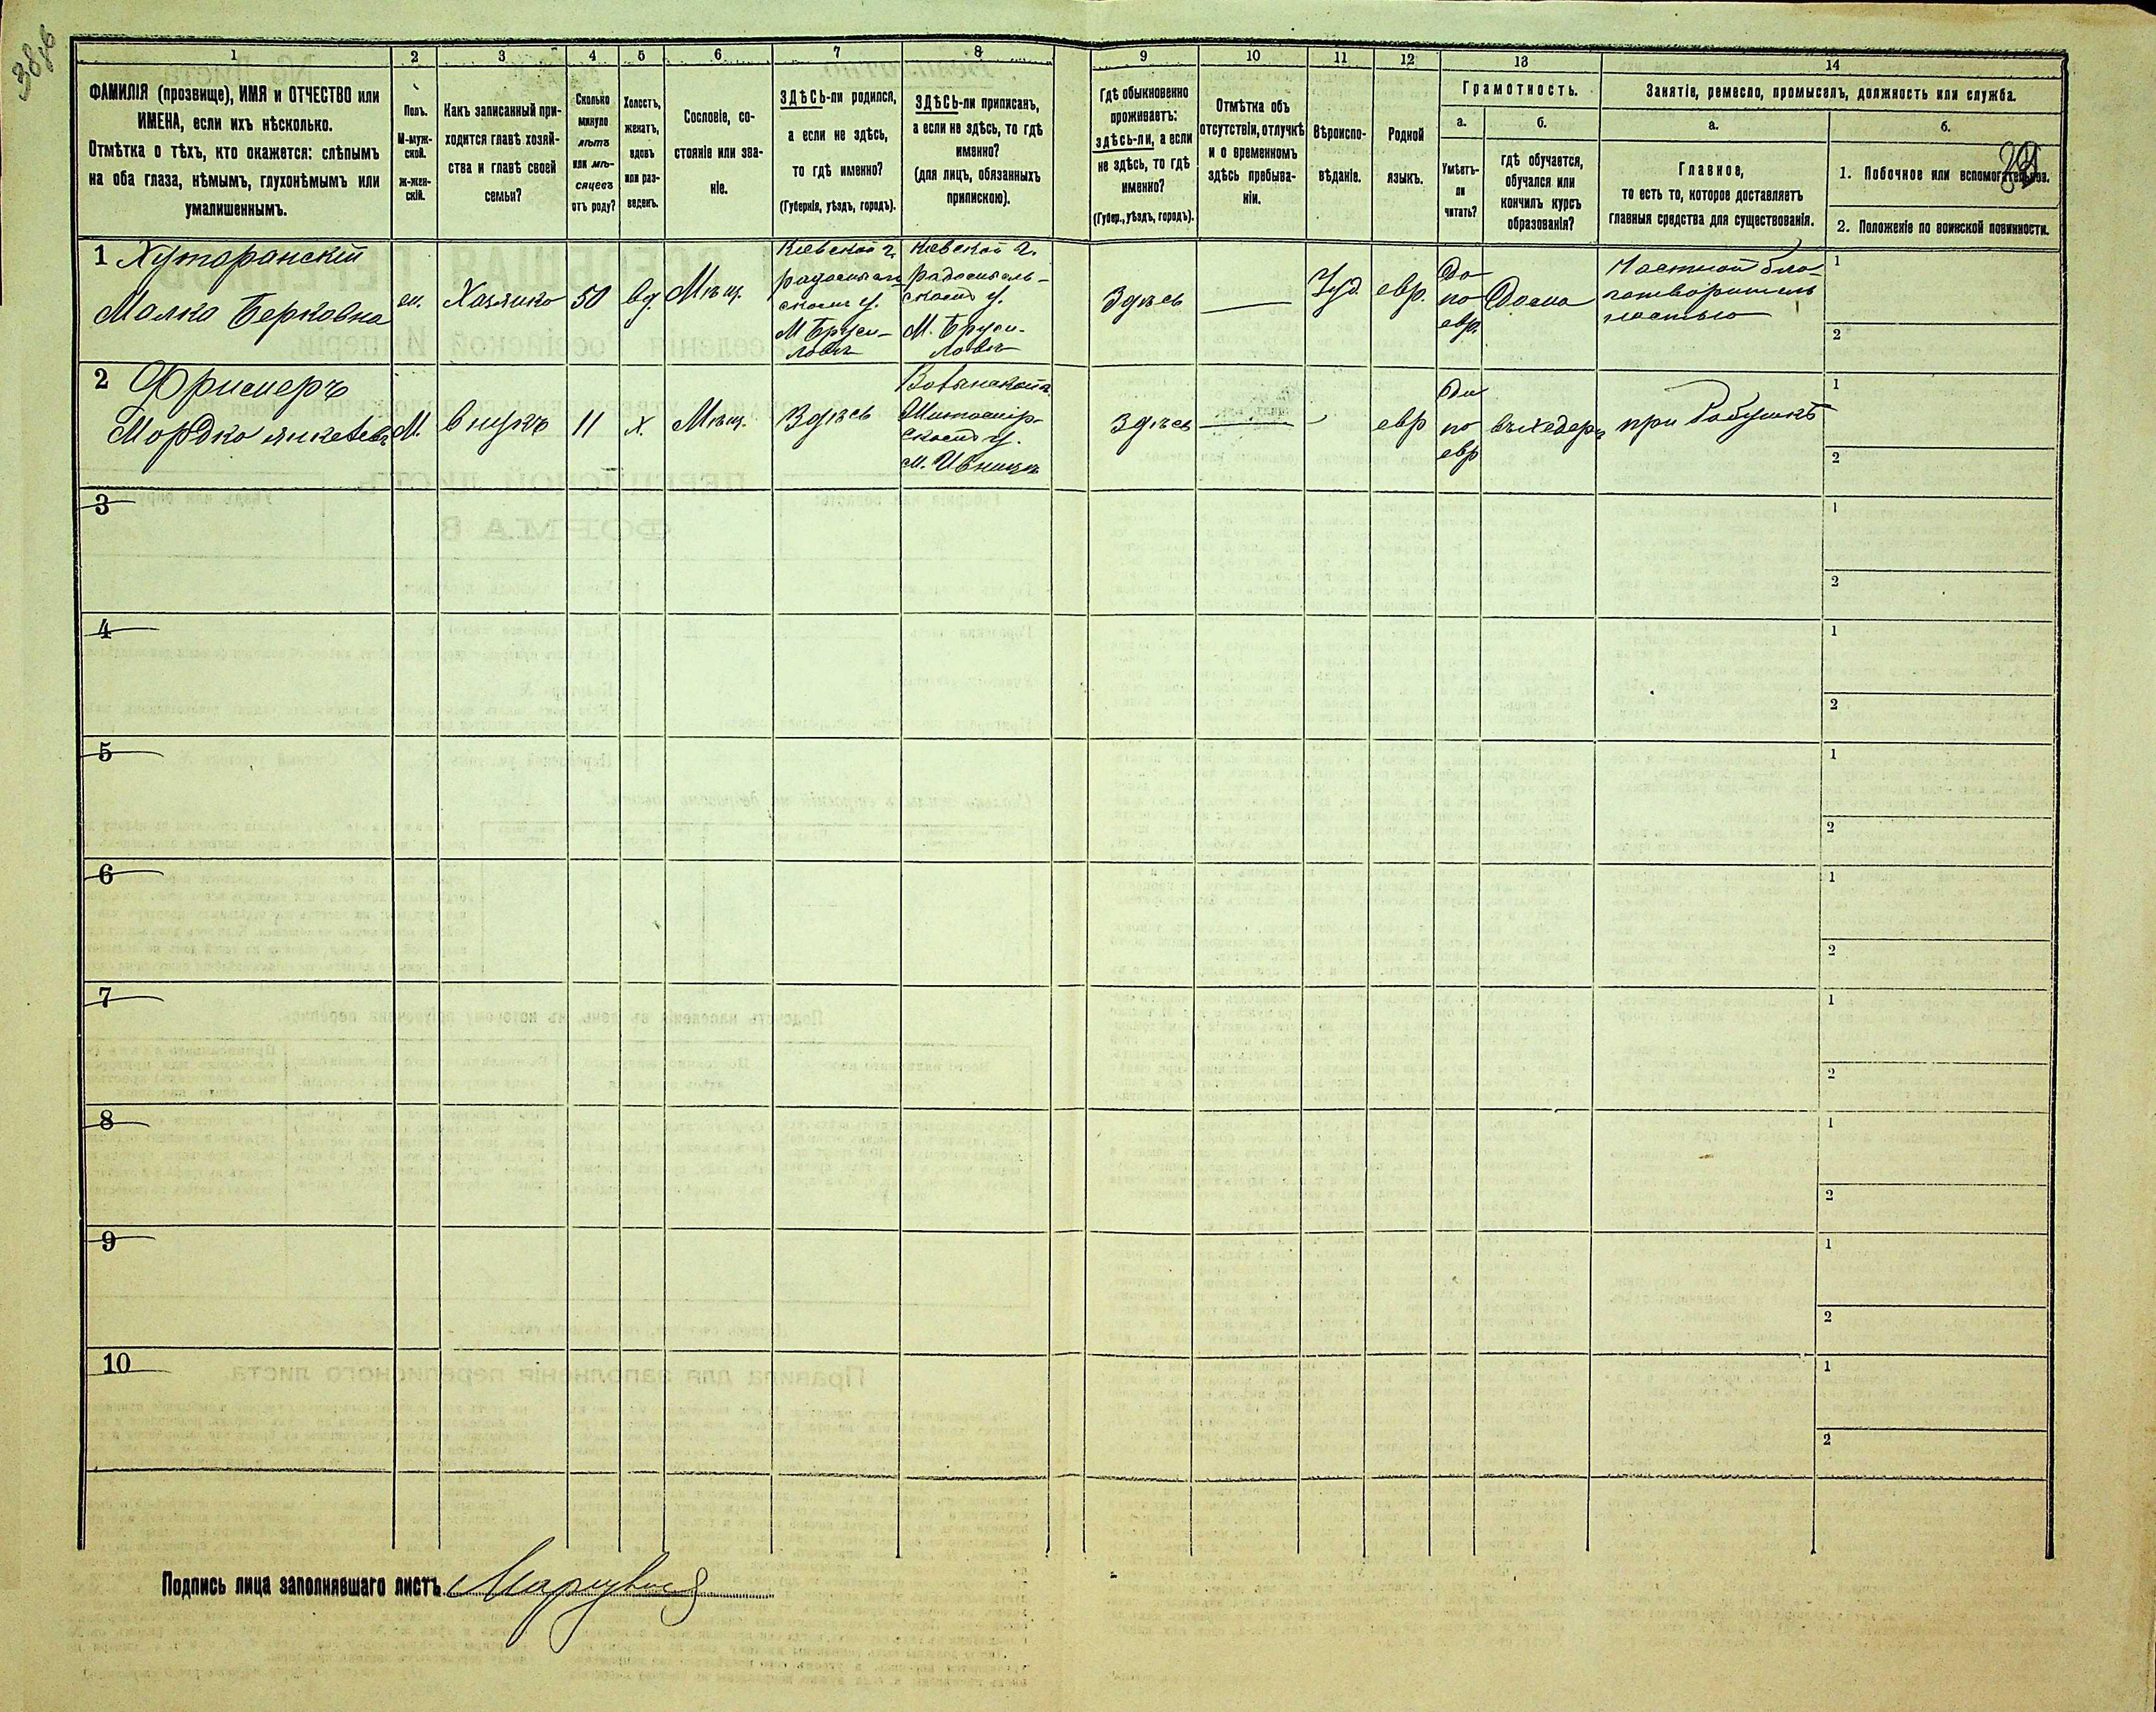 38
1 2 3 4 5 6 7 8 9 10 11 12 13 14
ФАМИЛІЯ (прозвище), ИМЯ и ОТЧЕСТВО или
ИМЕНА, если ихъ нѣсколько.
Отмѣтка о тѣхъ, кто окажется: слѣпымъ
на оба глаза, нѣмымъ, глухонѣмымъ или
умалишеннымъ.
Полъ.
М-муж-
ской.
ж-жен-
скій.
Какъ записанный при-
ходится главѣ хозяй-
ства и главѣ своей
семьи?
Сколько
минуло
лѣтъ
или мѣ-
сяцевъ
отъ роду?
Холостъ,
женатъ,
вдовъ
или раз-
веденъ.
Сословіе, со-
стояніе или зва-
ніе.
ЗДѢСЬ-ли родился,
а если не здѣсь,
то гдѣ именно?
(Губернія, уѣздъ, городъ).
ЗДѢСЬ-ли приписанъ,
а если не здѣсь, то гдѣ
именно?
(для лицъ, обязанныхъ
припискою).
Гдѣ обыкновенно
проживаетъ:
здѣсь-ли, а если
не здѣсь, то гдѣ
именно?
(Губер., уѣздъ, городъ).
Отмѣтка объ
отсутствіи, отлучкѣ
и о временномъ
здѣсь пребыва-
ніи.
Вѣроиспо-
вѣданіе.
Родной
языкъ.
Грамотность.
а.
Умѣетъ-
ли
читать?
б.
гдѣ обучается,
обучался или
кончилъ курсъ
образованія?
Занятіе, ремесло, промыселъ, должность или служба.
а.
Главное,
то есть то, которое доставляетъ
главныя средства для существованія.
б.
1. Побочное или вспомогательное.
2. Положеніе по воинской повинности.
1 Хуторанскій
Малка Берковна
Хозяйка
50
вд.
Мѣщ.
Кіевской г.
Радомысль-
скаго у.
М Бруси-
ловъ
Кіевской г.
Радомысль-
скаго у.
М. Бруси-
ловъ
Здѣсь
Іуд.
евр.
Да
по
евр.
Дома
Частной бла-
готворитель
ностью
1
2
2 Фришеръ
Мордко Янкелевъ
М.
внукъ
11
х.
Мѣщ.
Здѣсь
Волынской г.
Житомір-
скаго у.
м. Ивница
Здѣсь
евр
Да
по
евр
въ хедеръ
при бабушкѣ
1
2
3
1
2
4
1
2
5
1
2
6
1
2
7
1
2
8
1
2
9
1
2
10
1
2
Подпись лица заполнявшаго листъ